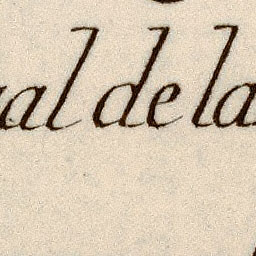 al de la